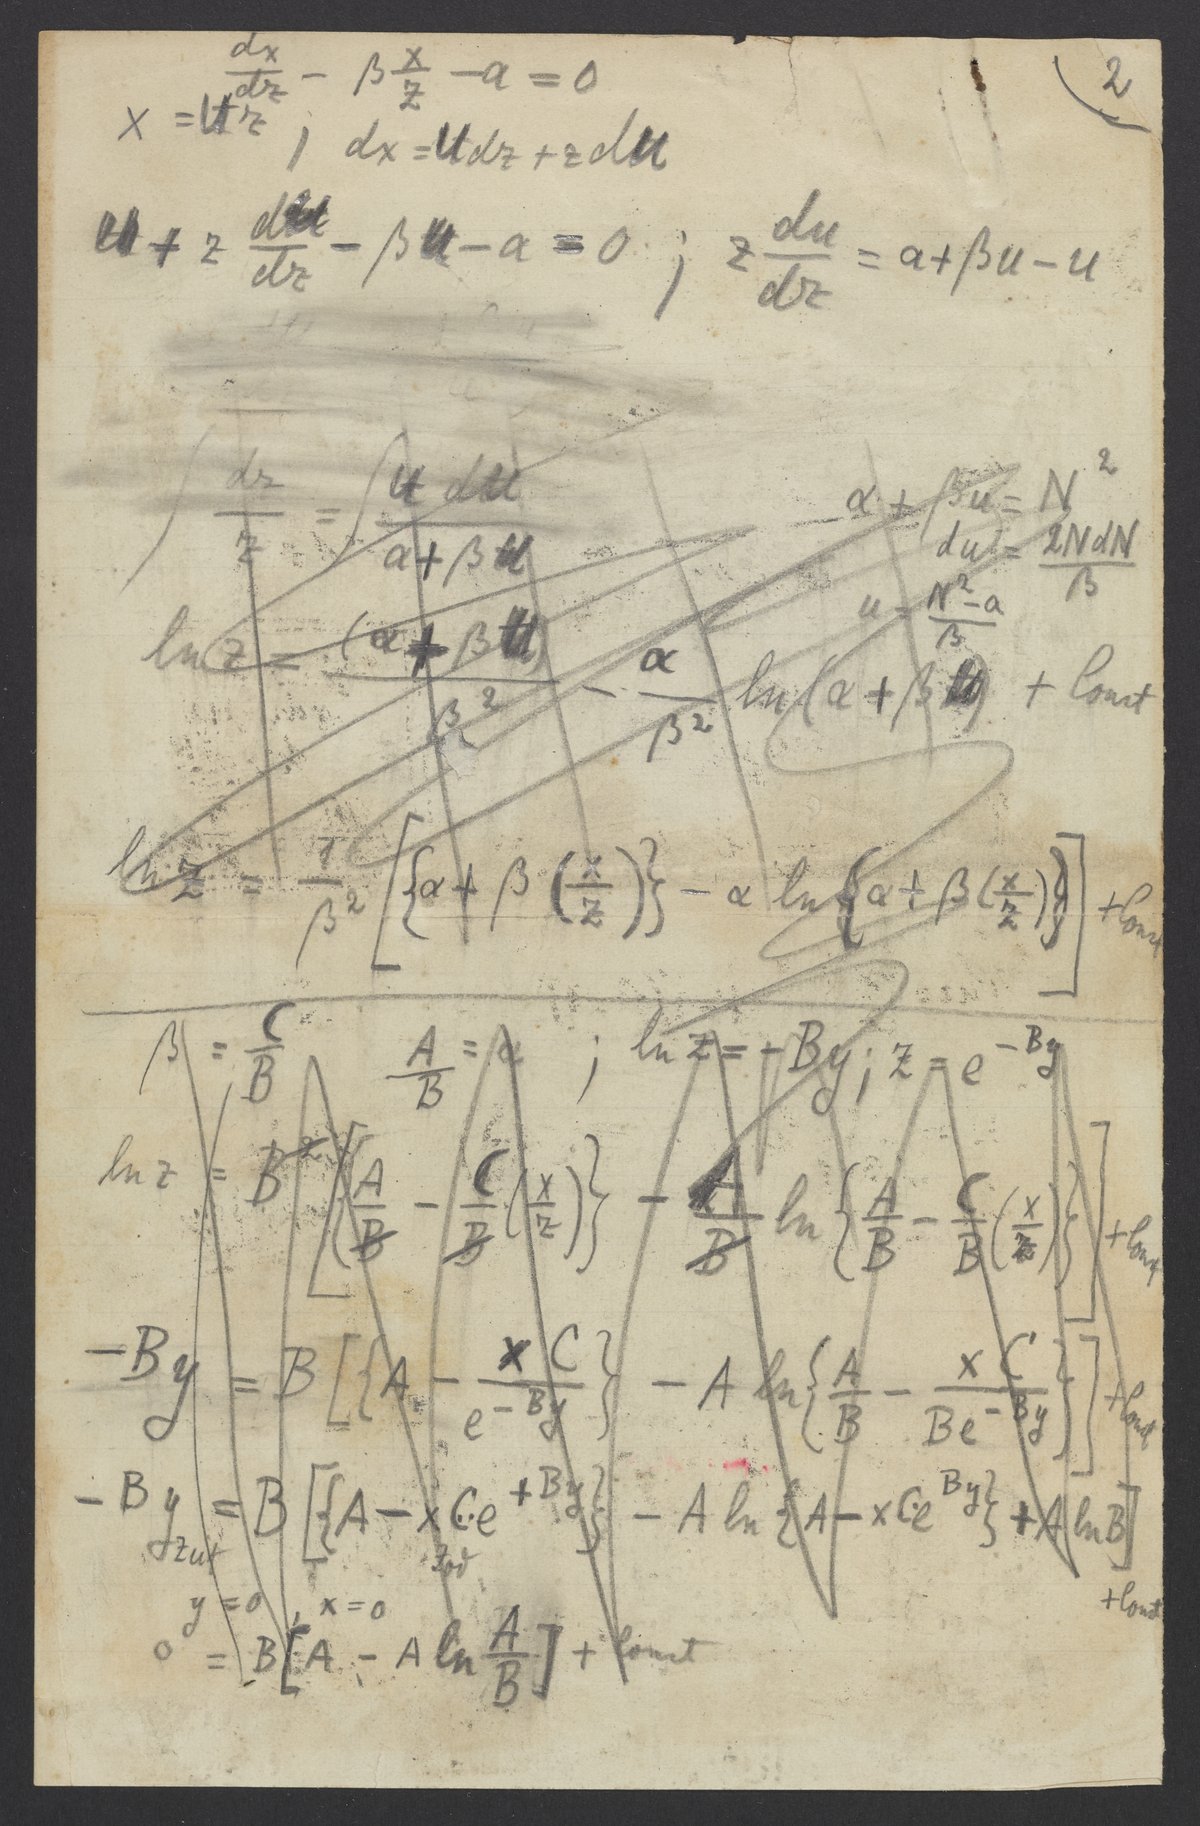 2
dx/dz − β x/z − a = 0
x = uz ; dx = u dz + z du
u + z du/dz − βu − a = 0 ; z du/dz = a + βu − u
∫ dz/z = ∫ u du / (a + βu)
α + βu = N²
du = 2N dN / β
u = (N² − a) / β
ln z = (α + βu) / β² − α/β² ln(α + βu) + Const
ln z = 1/β² [{α + β(x/z)} − α ln{α + β(x/z)}] + Const
β = C/B ; A/B = α ; ln z = −By ; z = e^−By
ln z = B² [{A/B − C/B (x/z)} − A/B ln{A/B − C/B (x/z)}] + Const
−By = B [{A − xC / e^−By} − A ln{A/B − xC / Be^−By}] + Const
−By = B [{A − xCe^+By} − A ln{A − xCe^By} + A ln B] + Const
y = 0, x = 0
0 = B [A − A ln A/B] + Const